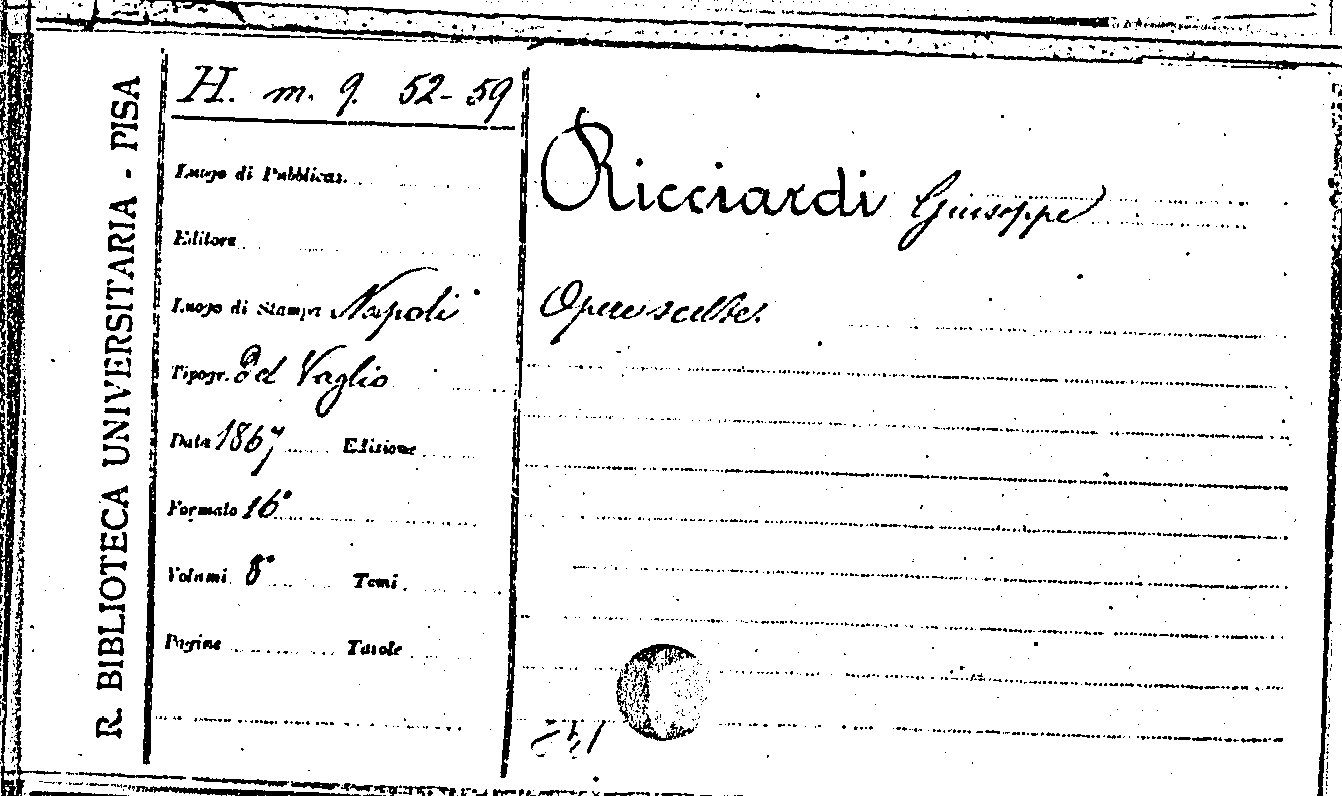 R. BIBLIOTECA UNIVERSITARIA - PISA
H. m. 9. 52-59
Luogo di Pubblicaz.
Editore
Luogo di Stampa Napoli
Tipogr. Del Vaglio
Data 1867 Edizione
Formato 16°
Volumi 8° Tomi
Pagine Tavole
Ricciardi Giuseppe
Opere scelte.